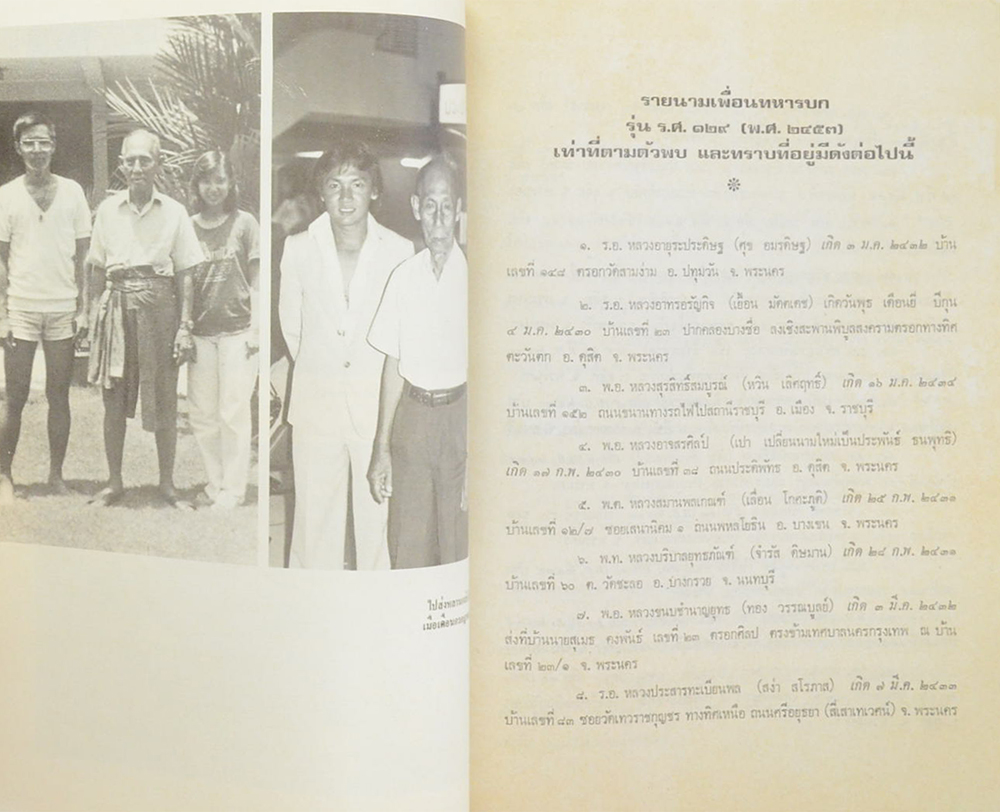 ไปส่ง
เมื่อเดือน
รายนามเพื่อนทหารบก
รุ่น ร.ศ. ๑๒๙ (พ.ศ. ๒๔๕๓)
เท่าที่ตามตัวพบ และทราบที่อยู่มีดังต่อไปนี้
๑. ร.อ. หลวงอายุระประดิษฐ (ศุข อมรดิษฐ) เกิด ๓ ม.ค. ๒๔๓๒ บ้าน
เลขที่ ๑๔๘ ตรอกวัดสามง่าม อ. ปทุมวัน จ. พระนคร
๒. ร.อ. หลวงอาทรอรัญกิจ (เยื้อน มัคคเดช) เกิดวันพุธ เดือนยี่ ปีกุน
๔ ม.ค. ๒๔๓๐ บ้านเลขที่ ๒๓ ปากคลองบางซื่อ ลงเชิงสะพานพิบูลสงครามตรอกทางทิศ
ตะวันตก อ. ดุสิต จ. พระนคร
๓. พ.อ. หลวงสุรสิทธิ์สมบูรณ์ (หวิน เลิศฤทธิ์) เกิด ๑๖ ม.ค. ๒๔๓๔
บ้านเลขที่ ๑๕๒ ถนนขนานทางรถไฟไปสถานีราชบุรี อ. เมือง จ. ราชบุรี
๔. พ.อ. หลวงอาจสรศิลป์ (เปา เปลี่ยนนามใหม่เป็นประพันธ์ ธนพุทธิ)
เกิด ๑๗ ก.พ. ๒๔๓๐ บ้านเลขที่ ๓๘ ถนนประดิพัทธ อ. ดุสิต จ. พระนคร
๕. พ.ต. หลวงสมานพลเกณฑ์ (เลื่อน โกคะภูติ) เกิด ๒๕ ก.พ. ๒๔๓๑
บ้านเลขที่ ๑๒/๗ ซอยเสนานิคม ๑ ถนนพหลโยธิน อ. บางเขน จ. พระนคร
๖. พ.ท. หลวงบริบาลยุทธภัณฑ์ (จำรัส ดิษมาน) เกิด ๒๘ ก.พ. ๒๔๓๑
บ้านเลขที่ ๖๐ ต. วัดชะลอ อ. บางกรวย จ. นนทบุรี
๗. พ.อ. หลวงขนบชำนาญยุทธ (ทอง วรรณบูลย์) เกิด ๓ มี.ค. ๒๔๓๒
ส่งที่บ้านนายสุเมธ คงพันธ์ เลขที่ ๒๓ ตรอกศิลป ตรงข้ามเทศบาลนครกรุงเทพ ณ บ้าน
เลขที่ ๒๓/๑ จ. พระนคร
๘. ร.อ. หลวงประสารทะเบียนพล (สง่า สโรภาส) เกิด ๗ มี.ค. ๒๔๓๓
บ้านเลขที่ ๘๓ ซอยวัดเทวราชกุญชร ทางทิศเหนือ ถนนศรีอยุธยา (สี่เสาเทเวศน์) จ. พระนคร